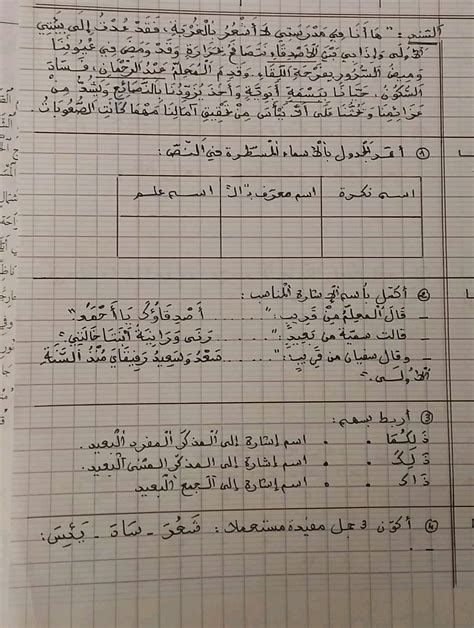 السند: "ها أنا في مدرستي لا أشعر بالغربة، فقد عدت إلى بيتي
الأولى وإذا بي بين الأصدقاء نتصافح بحرارة وقد ومض في عيوننا
وميض السرور بفرحة اللقاء. وقدم المعلم عبد الرحمان. فساد
السكون. حيانا ببسمة أبوية وأخذ يزودنا بالنصائع ويشد من
عزائمنا ويحثنا على أن نيأس من تحقيق آمالنا مهما كانت الصعوبات
① أعمر الجدول بالأسماء المسطرة في النص:
اسم نكرة اسم معرف بـ"ال" اسم علم
② أكمل باسم الإشارة المناسب:
_ قال المعلم من قريب: "........ أصدقاؤك يا أحمد"
_ قالت سمية من بعيد: "........ رنى ورانية ابنتا خالتي"
_ وقال سفيان من قريب: "........ مسعد وسعيد رفيقاي منذ السنة
الأولى."
③ أربط بسهم:
ذلكما • • اسم إشارة إلى المذكر المفرد البعيد.
ذلك • • اسم إشارة إلى المذكر المثنى البعيد.
ذاك • • اسم إشارة إلى الجمع البعيد
④ أكون 3 جمل مفيدة مستعملا: شعر - ساد - يئس: